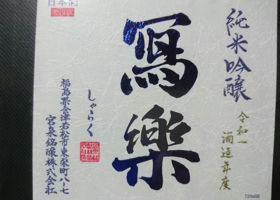 日本酒
純米吟醸
令和一
酒造年度
寫樂
しゃらく
福島県会津若松市東栄町八-七
宮泉銘醸株式会社